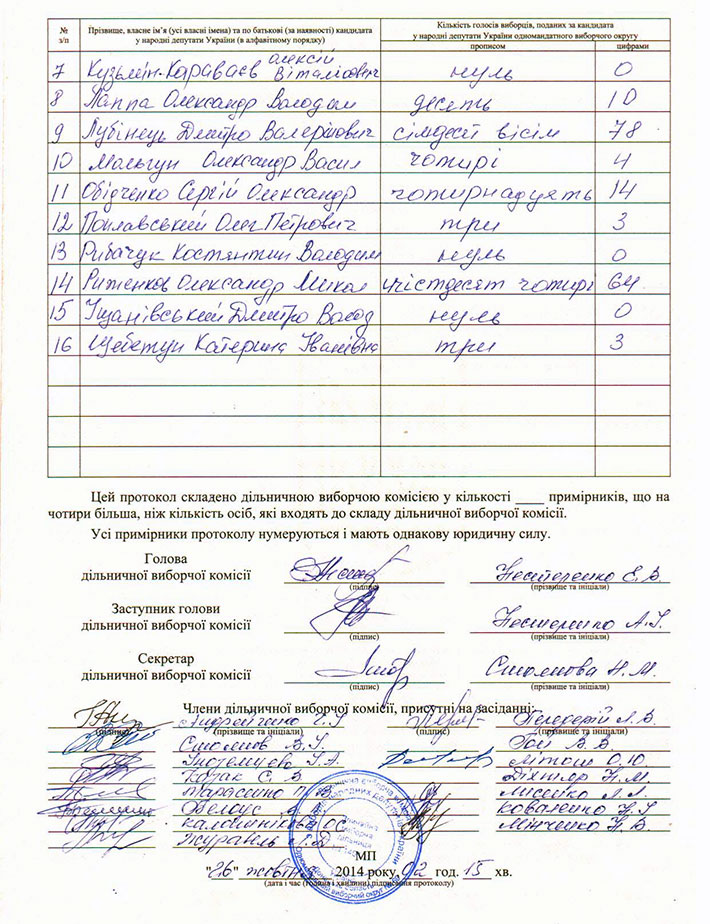 № з/п
Прізвище, власне ім'я (усі власні імена) та по батькові (за наявності) кандидата
у народні депутати України (в алфавітному порядку)
Кількість голосів виборців, поданих за кандидата
у народні депутати України одномандатного виборчого округу
прописом цифрами
7 Кузьмін-Караваєв Олексій Віталійович нуль 0
8 Лаппа Олександр Володим десять 10
9 Лубінець Дмитро Валерійович сімдесят вісім 78
10 Мальгун Олександр Васил чотирі 4
11 Обідченко Сергій Олександр чотирнадцять 14
12 Поплавський Олег Петрович три 3
13 Рибачук Костянтин Володим нуль 0
14 Риженков Олександр Микол шістдесят чотирі 64
15 Дмитро Волод нуль 0
16 Щебетун Катерина Іванівна три 3
Цей протокол складено дільничною виборчою комісією у кількості ____ примірників, що на
чотири більша, ніж кількість осіб, які входять до складу дільничної виборчої комісії.
Усі примірники протоколу нумеруються і мають однакову юридичну силу.
Голова
дільничної виборчої комісії Нестеренко Є.В.
(підпис) (прізвище та ініціали)
Заступник голови
дільничної виборчої комісії Нестеренко А.І.
(підпис) (прізвище та ініціали)
Секретар
дільничної виборчої комісії Н.М.
(підпис) (прізвище та ініціали)
Члени дільничної виборчої комісії, присутні на засіданні:
(підпис) (прізвище та ініціали) (підпис) (прізвище та ініціали)
Гой В.В.
Козак С.В
Білоус
Коваленко Н.І
Журавль Мінченко Н.В.
МП
"26" жовтня 2014 року, 02 год. 15 хв.
(дата і час (година і хвилини) підписання протоколу)